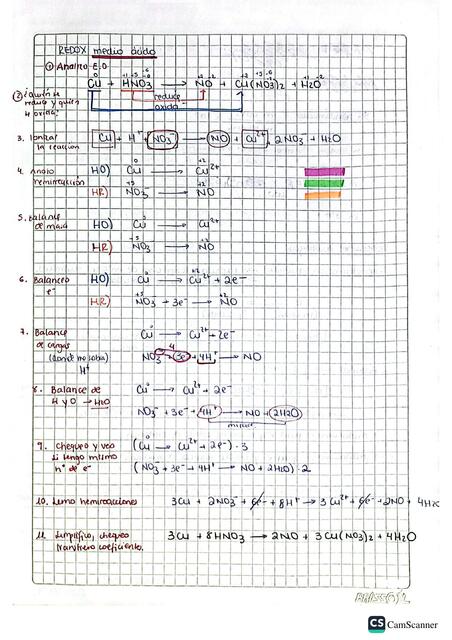 REDOX medio ácido
① Analizo E.O
0 +1 +5 -6 +2 -2 +2 +5 -6 +1 -2
Cu + HNO3 → NO + Cu(NO3)2 + H2O
② ¿Quién se reduce y quién se oxida?
reduce
oxida
3. Ionizar la reacción
Cu + H+ + NO3- → NO + Cu2+ + 2NO3- + H2O
4. Anoto semireacción
HO) Cu → Cu2+
HR) NO3- → NO
5. Balance de masa
HO) Cu → Cu2+
HR) NO3- → NO
6. Balanceo e-
HO) Cu → Cu2+ + 2e-
HR) NO3- + 3e- → NO
7. Balance de cargas (donde no haba) H+
Cu → Cu2+ + 2e-
4
NO3- + 3e- + 4H+ → NO
8. Balance de H y O → H2O
Cu → Cu2+ + 2e-
NO3- + 3e- + 4H+ → NO + 2H2O
9. Chequeo y veo si tengo mismo n° de e-
(Cu → Cu2+ + 2e-) · 3
(NO3- + 3e- + 4H+ → NO + 2H2O) · 2
10. Sumo hemireacciones
3Cu + 2NO3- + 6e- + 8H+ → 3Cu2+ + 6e- + 2NO + 4H2O
11. Simplifico, chequeo transfiero coeficiente.
3Cu + 8HNO3 → 2NO + 3Cu(NO3)2 + 4H2O
CS CamScanner